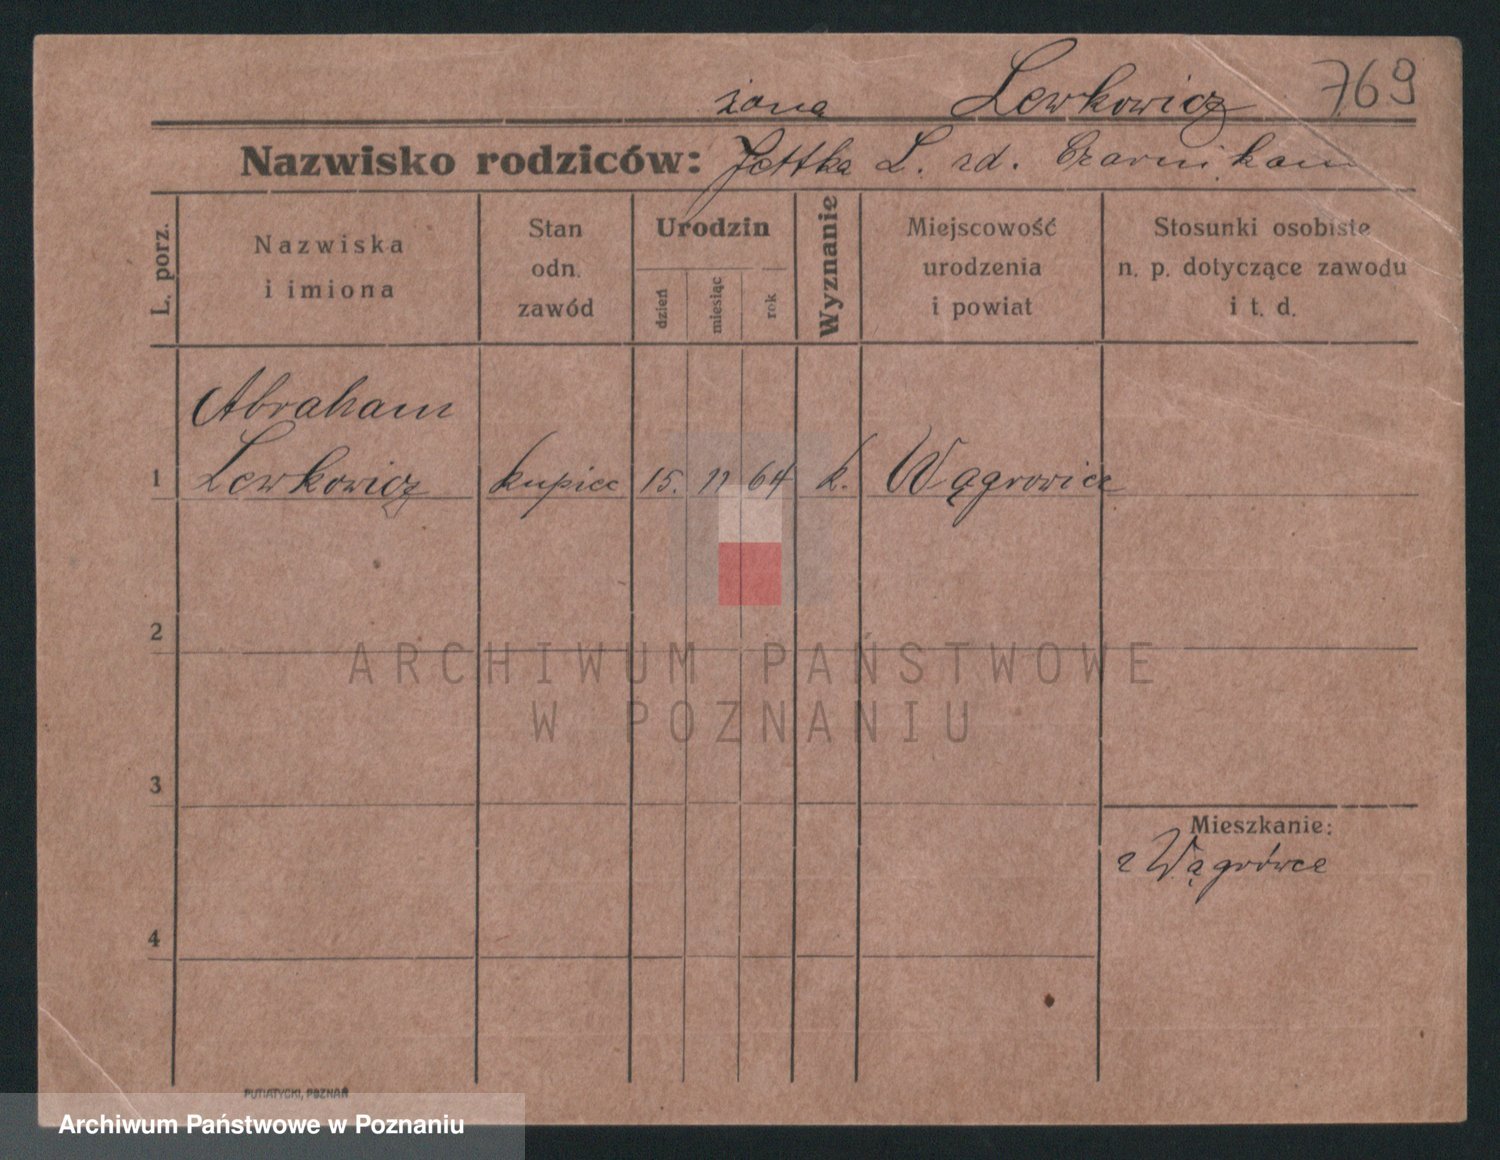 żona Lewkowicz 769
Nazwisko rodziców: Jettka L. rd. Czarnikau
L. porz.
Nazwiska
i imiona
Stan
odn.
zawód
Urodzin
dzień
miesiąc
rok
Wyznanie
Miejscowość
urodzenia
i powiat
Stosunki osobiste
n. p. dotyczące zawodu
i t. d.
Abraham
1 Lewkowicz kupiec 15. 11 64 k. Wągrowiec
2
ARCHIWUM PAŃSTWOWE
W POZNANIU
3
Mieszkanie:
z Wągrówca
4
PUTIATYCKI, POZNAŃ
Archiwum Państwowe w Poznaniu